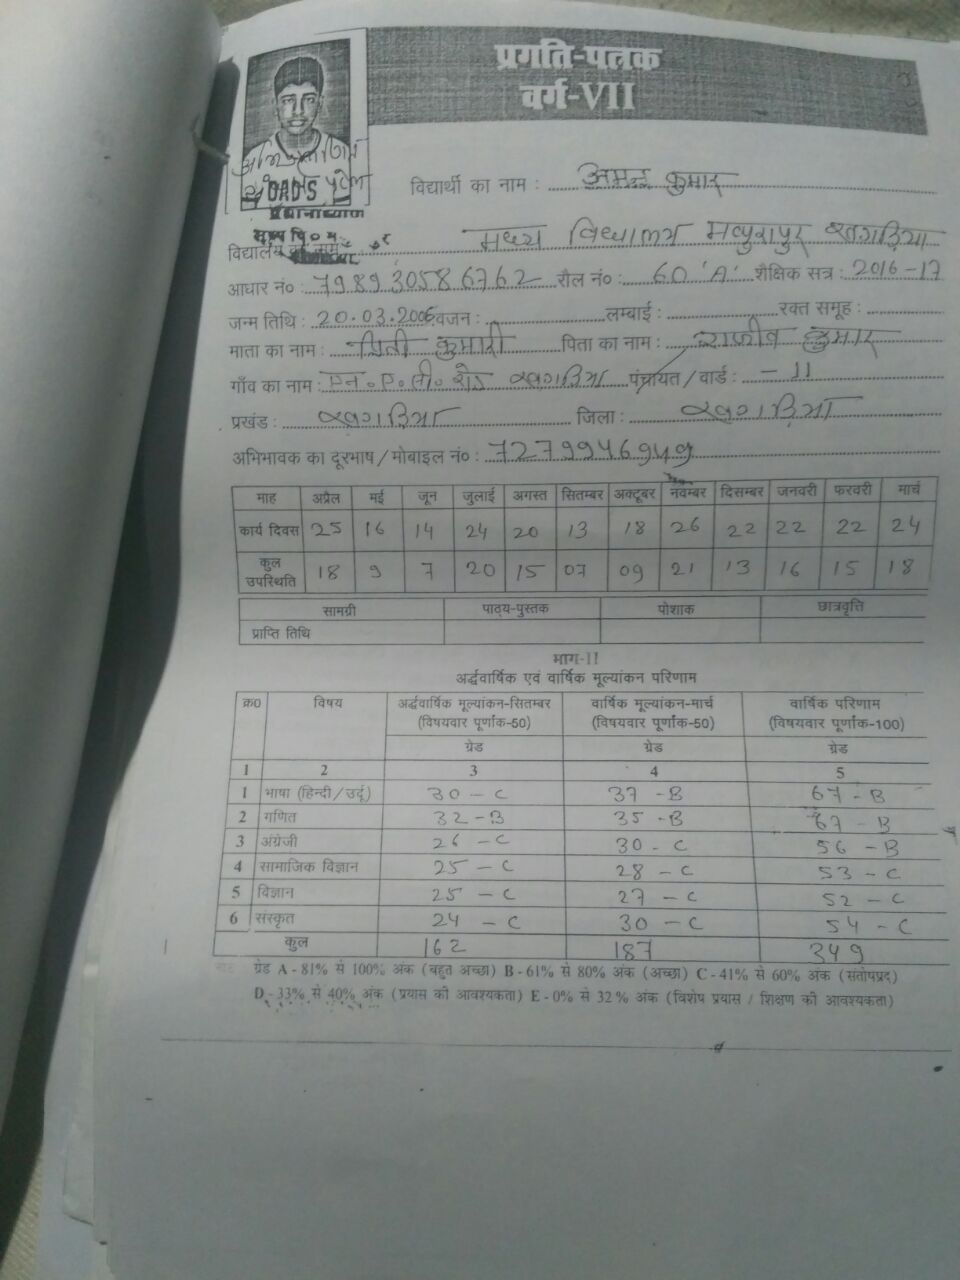 प्रगति-पत्रक
वर्ग-VII
विद्यार्थी का नाम : अमन कुमार
विद्यालय का नाम मध्य विद्यालय मथुरापुर खगड़िया
आधार नं० : 798930586762 रौल नं० : 60 'A' शैक्षिक सत्र : 2016-17
जन्म तिथि : 20.03.2006 वजन : लम्बाई : रक्त समूह :
माता का नाम : कुमारी पिता का नाम : राजीव कुमार
गाँव का नाम : एन. ए. सी. रोड खगड़िया पंचायत / वार्ड : - 11
प्रखंड : खगड़िया जिला : खगड़िया
अभिभावक का दूरभाष / मोबाइल नं० : 7279946949
माह अप्रैल मई जून जुलाई अगस्त सितम्बर अक्टूबर नवम्बर दिसम्बर जनवरी फरवरी मार्च
कार्य दिवस 25 16 14 24 20 13 18 26 22 22 22 24
कुल उपस्थिति 18 9 7 20 15 07 09 21 13 16 15 18
सामग्री पाठ्य-पुस्तक पोशाक छात्रवृत्ति
प्राप्ति तिथि
भाग-II
अर्द्धवार्षिक एवं वार्षिक मूल्यांकन परिणाम
क्र० विषय अर्द्धवार्षिक मूल्यांकन-सितम्बर वार्षिक मूल्यांकन-मार्च वार्षिक परिणाम
(विषयवार पूर्णांक-50) (विषयवार पूर्णांक-50) (विषयवार पूर्णांक-100)
ग्रेड ग्रेड ग्रेड
1 2 3 4 5
1 भाषा (हिन्दी / उर्दू) 30 - C 37 - B 67 - B
2 गणित 32 - B 35 - B 67 - B
3 अंग्रेजी 26 - C 30 - C 56 - B
4 सामाजिक विज्ञान 25 - C 28 - C 53 - C
5 विज्ञान 25 - C 27 - C 52 - C
6 संस्कृत 24 - C 30 - C 54 - C
कुल 162 187 349
ग्रेड A - 81% से 100% अंक (बहुत अच्छा) B - 61% से 80% अंक (अच्छा) C - 41% से 60% अंक (संतोषप्रद)
D - 33% से 40% अंक (प्रयास की आवश्यकता) E - 0% से 32% अंक (विशेष प्रयास / शिक्षण की आवश्यकता)